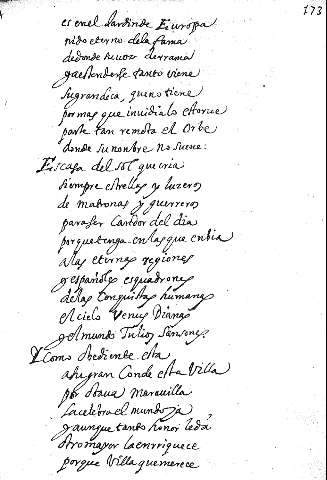 173
es en el Jardin de Europa
nido eterno de la fama
de donde su voz derrama
y a estenderse tanto viene
su grandeça, que no tiene
por mas que inuidia lo estorue
parte tan remota el Orbe
donde su nombre no suene.
Es casa del sol que cria
siempre estrellas y luzeros
de matronas y guerreros
para ser Candor del dia
porque tenga en las que enbia
a las eternas regiones
y españoles esquadrones
de las conquistas humanas
el cielo Venus Dianas
y el mundo Tulios Sansones.
Y Como obediente esta
a su gran Conde esta Villa
por otaua marauilla
la celebra el mundo ya
y aunque tanto honor le da
otro mayor la enrriquece
porque Villa que merece